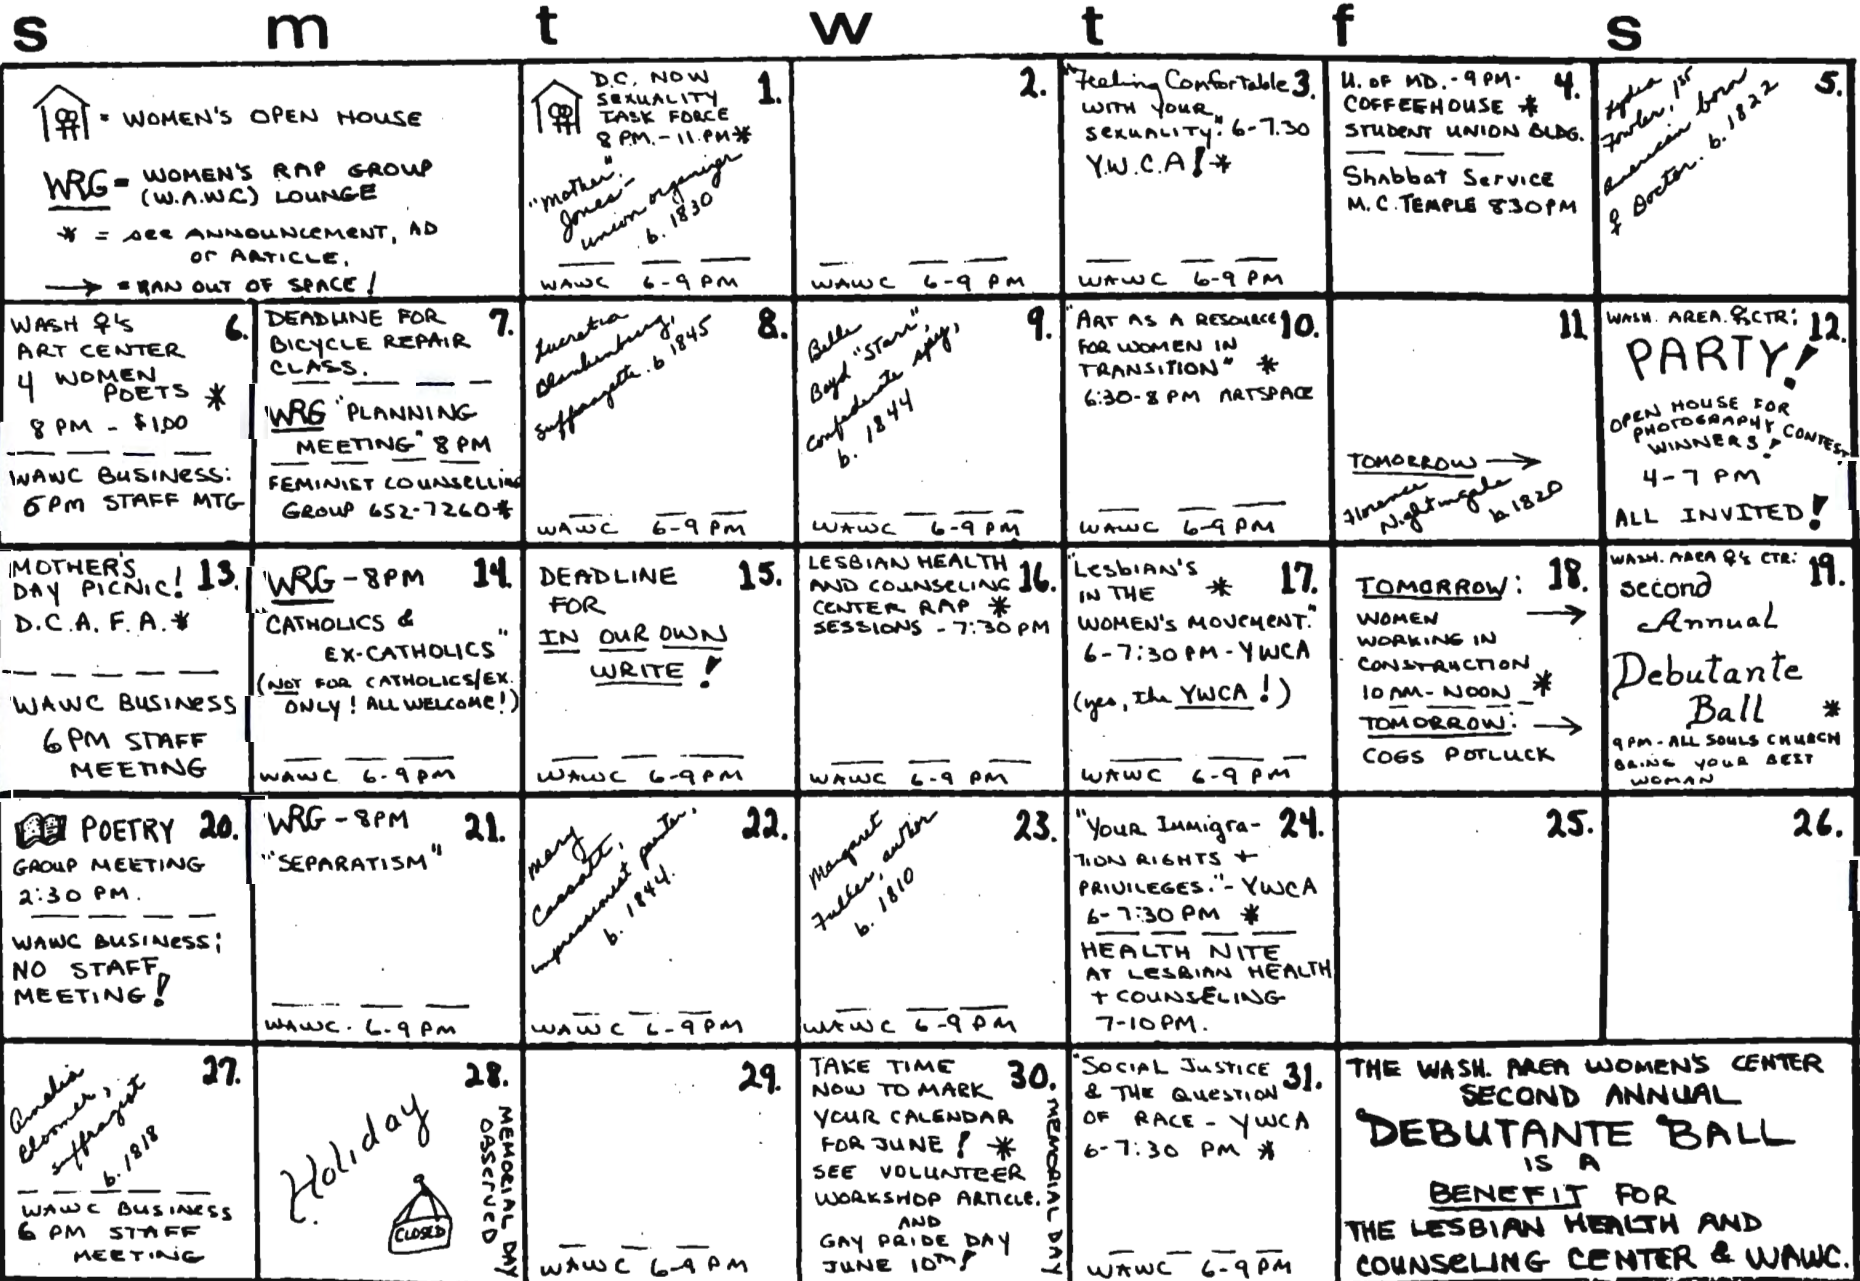 s m t w t f s
= WOMEN'S OPEN HOUSE
WRG = WOMEN'S RAP GROUP
(W.A.W.C) LOUNGE
* = see ANNOUNCEMENT, AD
or ARTICLE.
→ = RAN OUT OF SPACE!
1.
D.C. NOW
SEXUALITY
TASK FORCE
8 P.M. - 11. PM *
"Mother"
Jones -
union organizer
b. 1830
WAWC 6-9 PM
2.
WAWC 6-9 PM
3.
"Feeling Comfortable
WITH YOUR
SEXUALITY": 6-7.30
Y.W.C.A! *
WAWC 6-9 PM
4.
U. OF MD. - 9 PM -
COFFEEHOUSE *
STUDENT UNION BLDG.
Shabbat Service
M.C. TEMPLE 830 PM
5.
Lydia
Fowler, 1st
American born
♀ Doctor. b. 1822
6.
WASH ♀'s
ART CENTER
4 WOMEN
POETS *
8 PM - $1.00
WAWC BUSINESS:
6 PM STAFF MTG
7.
DEADLINE FOR
BICYCLE REPAIR
CLASS.
WRG "PLANNING
MEETING" 8 PM
FEMINIST COUNSELLING
GROUP 652-7260 *
8.
Lucretia
Blankenburg,
suffragette. b 1845
WAWC 6-9 PM
9.
Belle
Boyd "Starr",
confederate spy,
b. 1844
WAWC 6-9 PM
10.
"ART AS A RESOURCE
FOR WOMEN IN
TRANSITION" *
6:30-8 PM ARTSPACE
WAWC 6-9 PM
11.
TOMORROW →
Florence
Nightingale
b. 1820
12.
WASH. AREA. ♀'s CTR:
PARTY!
OPEN HOUSE FOR
PHOTOGRAPHY CONTEST
WINNERS!
4-7 PM
ALL INVITED!
13.
MOTHER'S
DAY PICNIC!
D.C.A.F.A. *
WAWC BUSINESS
6 PM STAFF
MEETING
14.
WRG - 8PM
"CATHOLICS &
EX-CATHOLICS"
(NOT FOR CATHOLICS/EX.
ONLY! ALL WELCOME!)
WAWC 6-9 PM
15.
DEADLINE
FOR
IN OUR OWN
WRITE!
WAWC 6-9 PM
16.
LESBIAN HEALTH
AND COUNSELING
CENTER RAP *
SESSIONS - 7:30 PM
WAWC 6-9 PM
17.
"LESBIAN'S
IN THE *
WOMEN'S MOVEMENT."
6-7:30 PM - YWCA
(yes, the YWCA!)
WAWC 6-9 PM
18.
TOMORROW:
WOMEN →
WORKING IN
CONSTRUCTION
10 AM - NOON *
TOMORROW: →
COGS POTLUCK
19.
WASH. AREA ♀'s CTR:
second
Annual
Debutante
Ball *
9 PM - ALL SOULS CHURCH
BRING YOUR BEST
WOMAN
20.
POETRY
GROUP MEETING
2:30 PM.
WAWC BUSINESS;
NO STAFF
MEETING!
21.
WRG - 8PM
"SEPARATISM"
WAWC. 6-9 PM
22.
Mary
Cassatt,
impressionist painter,
b. 1844.
WAWC 6-9 PM
23.
Margaret
Fuller, author
b. 1810
WAWC 6-9 PM
24.
"YOUR Immigra-
TION RIGHTS +
PRIVILEGES." - YWCA
6-7:30 PM *
HEALTH NITE
AT LESBIAN HEALTH
+ COUNSELING
7-10 PM.
25.
26.
27.
Amelia
Bloomer,
suffragist
b. 1818
WAWC BUSINESS
6 PM STAFF
MEETING
28.
Holiday
CLOSED
MEMORIAL DAY
OBSERVED
29.
WAWC 6-9 PM
30.
TAKE TIME
NOW TO MARK
YOUR CALENDAR
FOR JUNE! *
SEE VOLUNTEER
WORKSHOP ARTICLE.
AND
GAY PRIDE DAY
JUNE 10TH!
MEMORIAL DAY
31.
"SOCIAL JUSTICE
& THE QUESTION
OF RACE - YWCA
6-7:30 PM *
WAWC 6-9 PM
THE WASH. AREA WOMEN'S CENTER
SECOND ANNUAL
DEBUTANTE BALL
IS A
BENEFIT FOR
THE LESBIAN HEALTH AND
COUNSELING CENTER & WAWC.